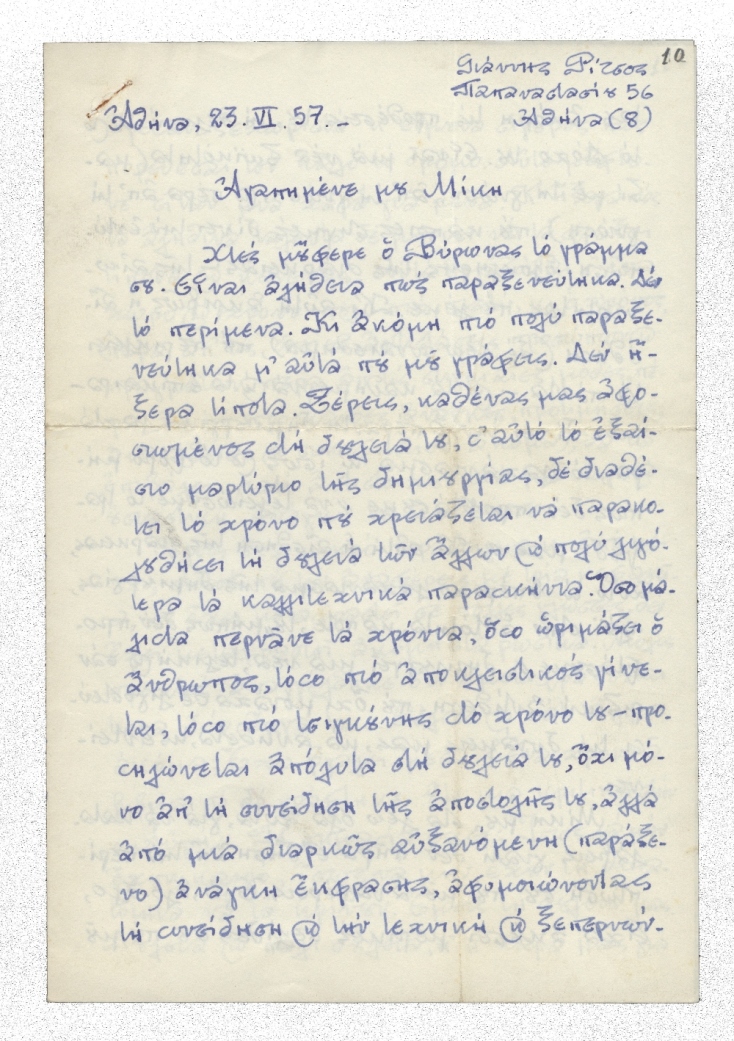 10
Γιάννης Ρίτσος
Παπαναστασίου 56
Ἀθήνα (8)
Ἀθήνα, 23.VI.57.-
Ἀγαπημένε μου Μίκη
Χτές μοὔφερε ὁ Βύρωνας τό γράμμα
σου. Εἶναι ἀλήθεια πώς παραξενεύτηκα. Δέν
τό περίμενα. Κι ἀκόμη πιό πολύ παραξε-
νεύτηκα μ' αὐτά πού μοῦ γράφεις. Δέν ἤ-
ξερα τίποτα. Ξέρεις, καθένας μας ἀφο-
σιωμένος στή δουλειά του, σ' αὐτό τό ἐξαί-
σιο μαρτύριο τῆς δημιουργίας, δέ διαθέ-
τει τό χρόνο πού χρειάζεται νά παρακο-
λουθήσει τή δουλειά τῶν ἄλλων καί πολύ λιγό-
τερα τά καλλιτεχνικά παρασκήνια. Ὅσο μά-
λιστα περνᾶνε τά χρόνια, ὅσο ὡριμάζει ὁ
ἄνθρωπος, τόσο πιό ἀποκλειστικός γίνε-
ται, τόσο πιό τσιγκούνης στό χρόνο του – προ-
σηλώνεται ἀπόλυτα στή δουλειά του, ὄχι μό-
νο ἀπ' τή συνείδηση τῆς ἀποστολῆς του, ἀλλά
ἀπό μιά διαρκῶς αὐξανόμενη (παράξε-
νο) ἀνάγκη ἔκφρασης, ἀφομοιώνοντας
τή συνείδηση καί τήν τεχνική καί ξεπερνών-